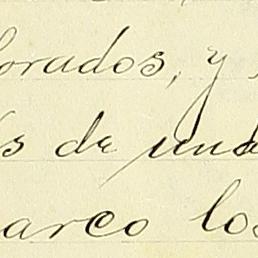 lorados, y
s de una
arco los